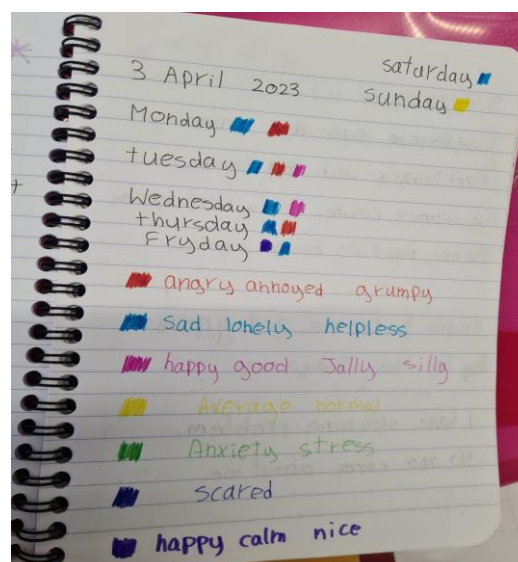 saturday
3 April 2023
sunday
Monday
tuesday
Wednesday
thursday
Fryday
angry annoyed grumpy
sad lonely helpless
happy good Jally silly
Average normal
Anxiety stress
scared
happy calm nice